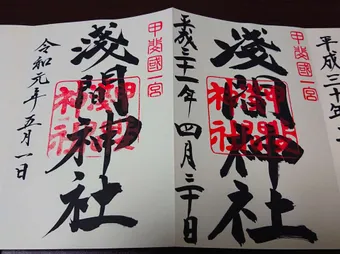 平成三十年
甲斐國一宮
淺間神社
平成三十一年四月三十日
甲斐國一宮
淺間神社
令和元年五月一日